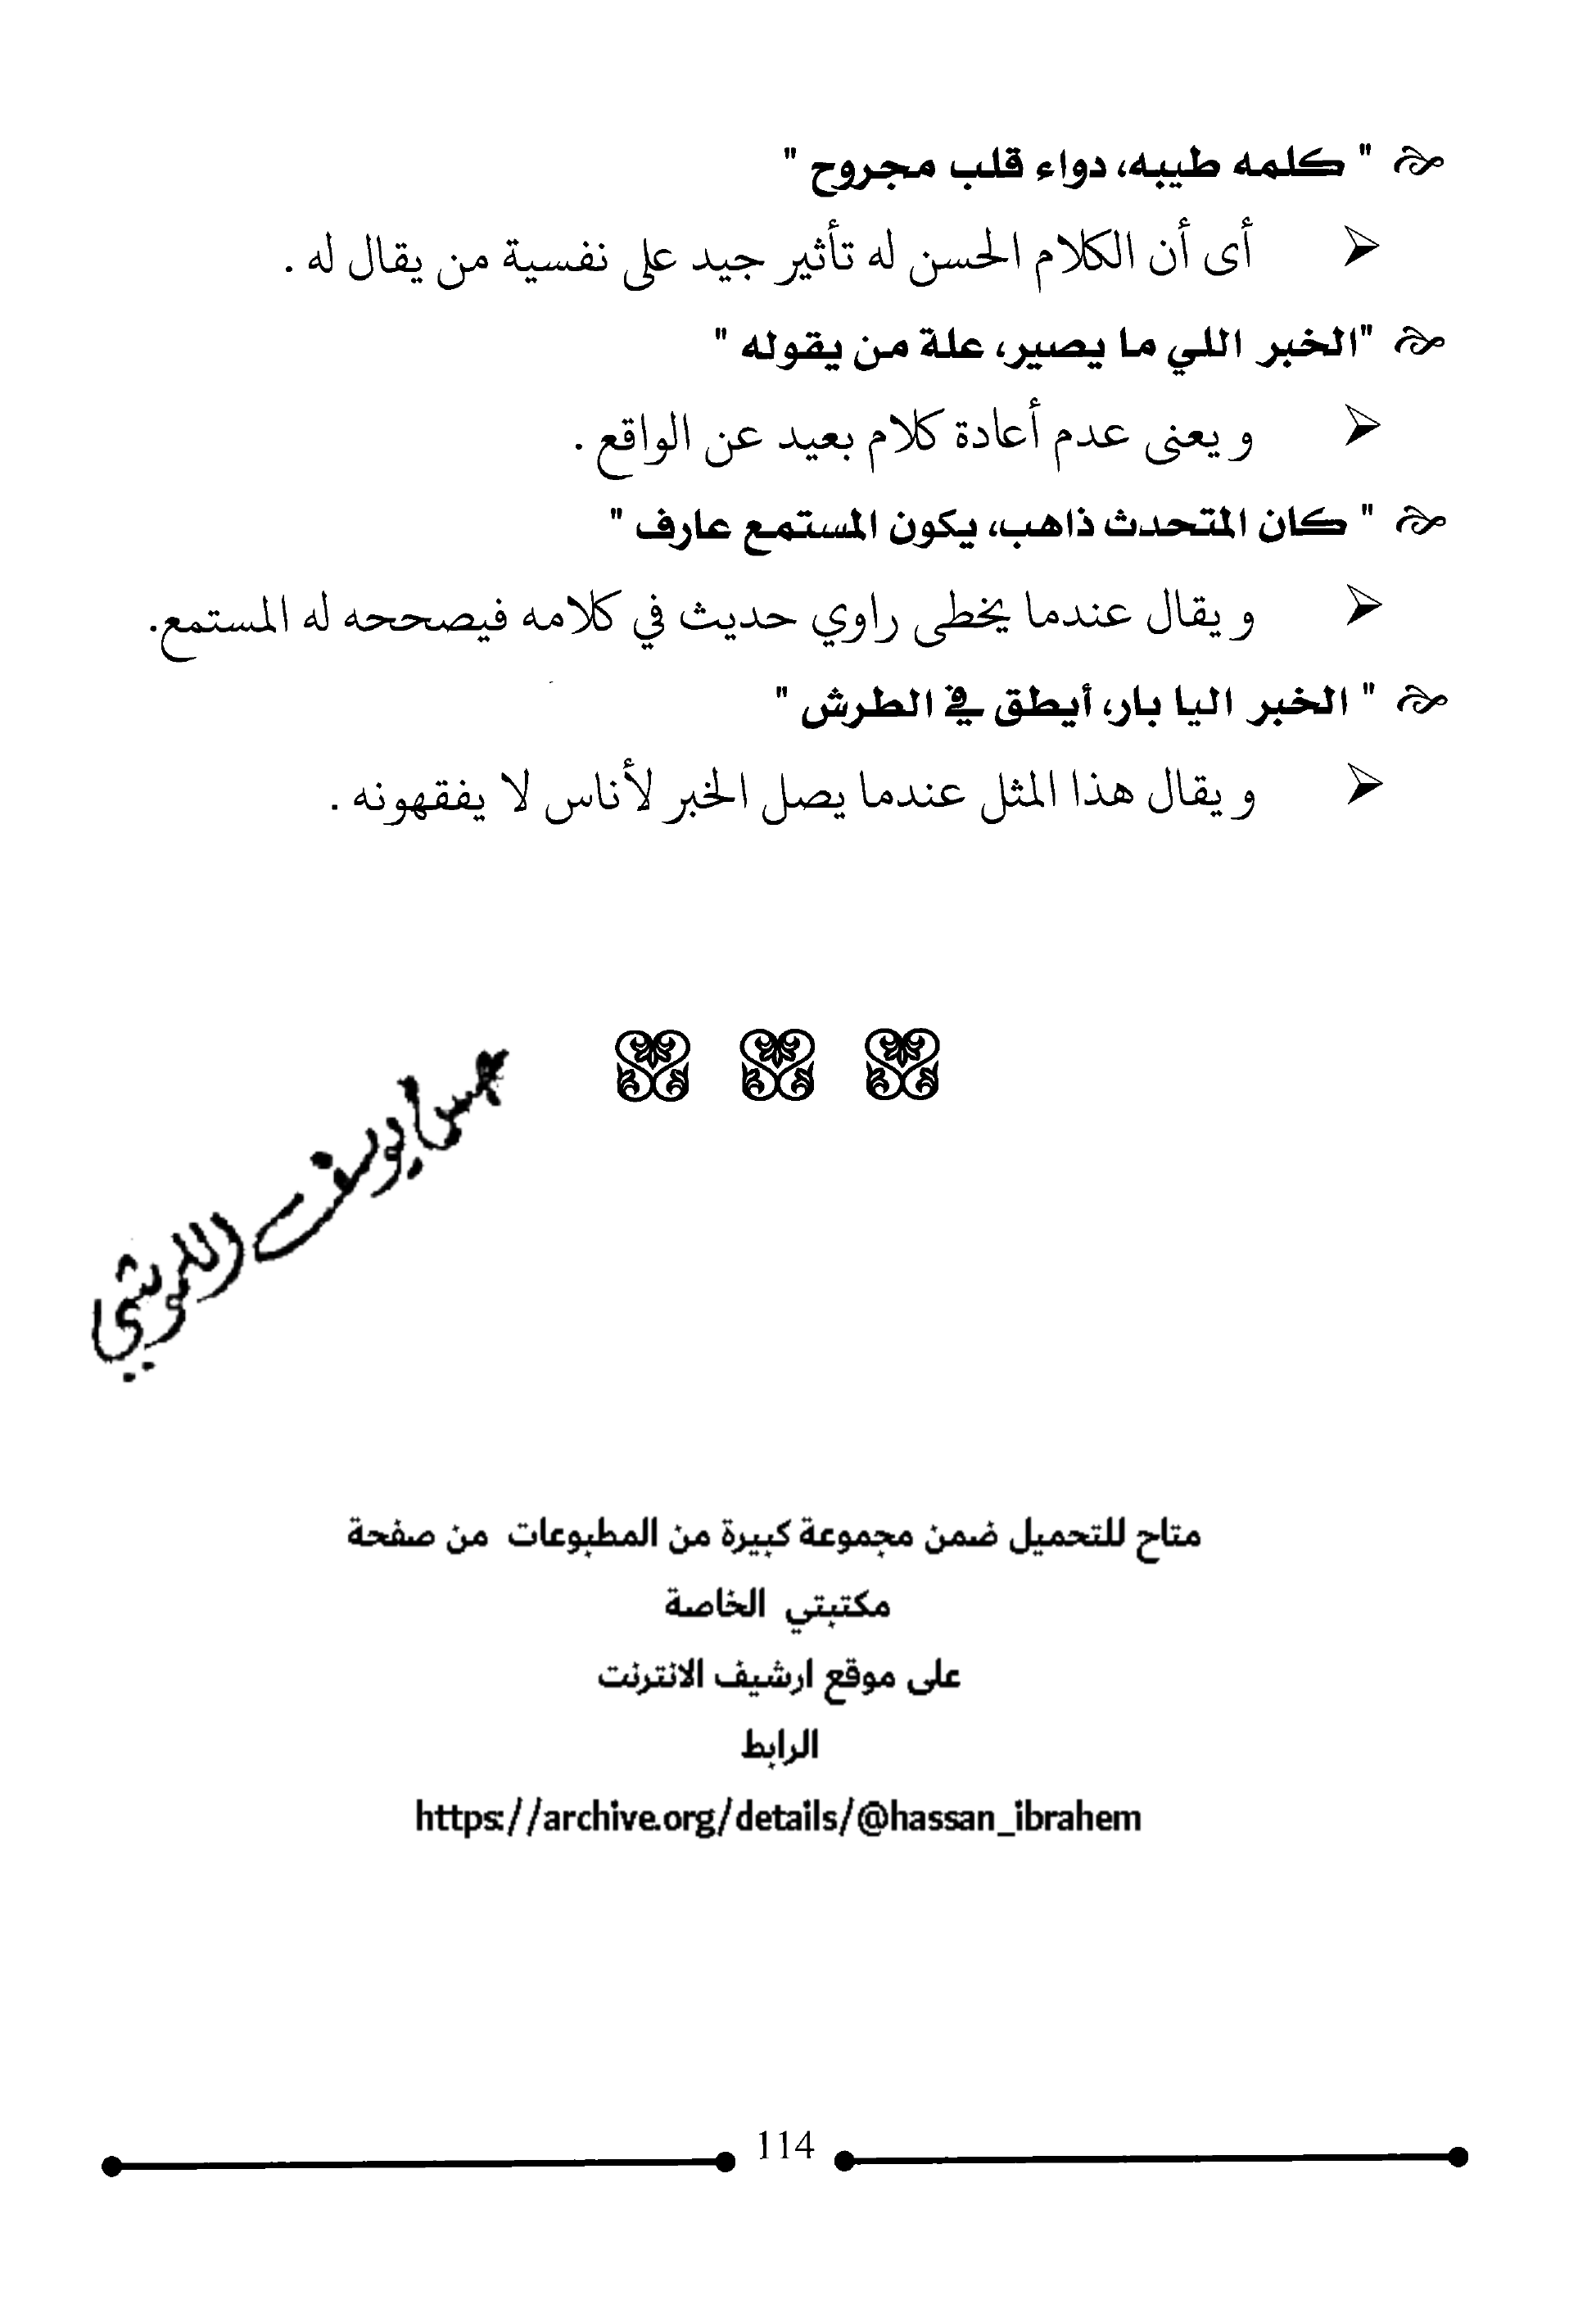 " كلمه طيبه، دواء قلب مجروح "
أى أن الكلام الحسن له تأثير جيد على نفسية من يقال له .
"الخبر اللي ما يصير، علة من يقوله "
و يعنى عدم أعادة كلام بعيد عن الواقع .
" كان المتحدث ذاهب، يكون المستمع عارف "
و يقال عندما يخطى راوي حديث في كلامه فيصححه له المستمع.
" الخبر اليا بار، أيطق في الطرش "
و يقال هذا المثل عندما يصل الخبر لأناس لا يفقهونه .
يوسف
متاح للتحميل ضمن مجموعة كبيرة من المطبوعات من صفحة
مكتبتي الخاصة
على موقع ارشيف الانترنت
الرابط
https://archive.org/details/@hassan_ibrahem
114